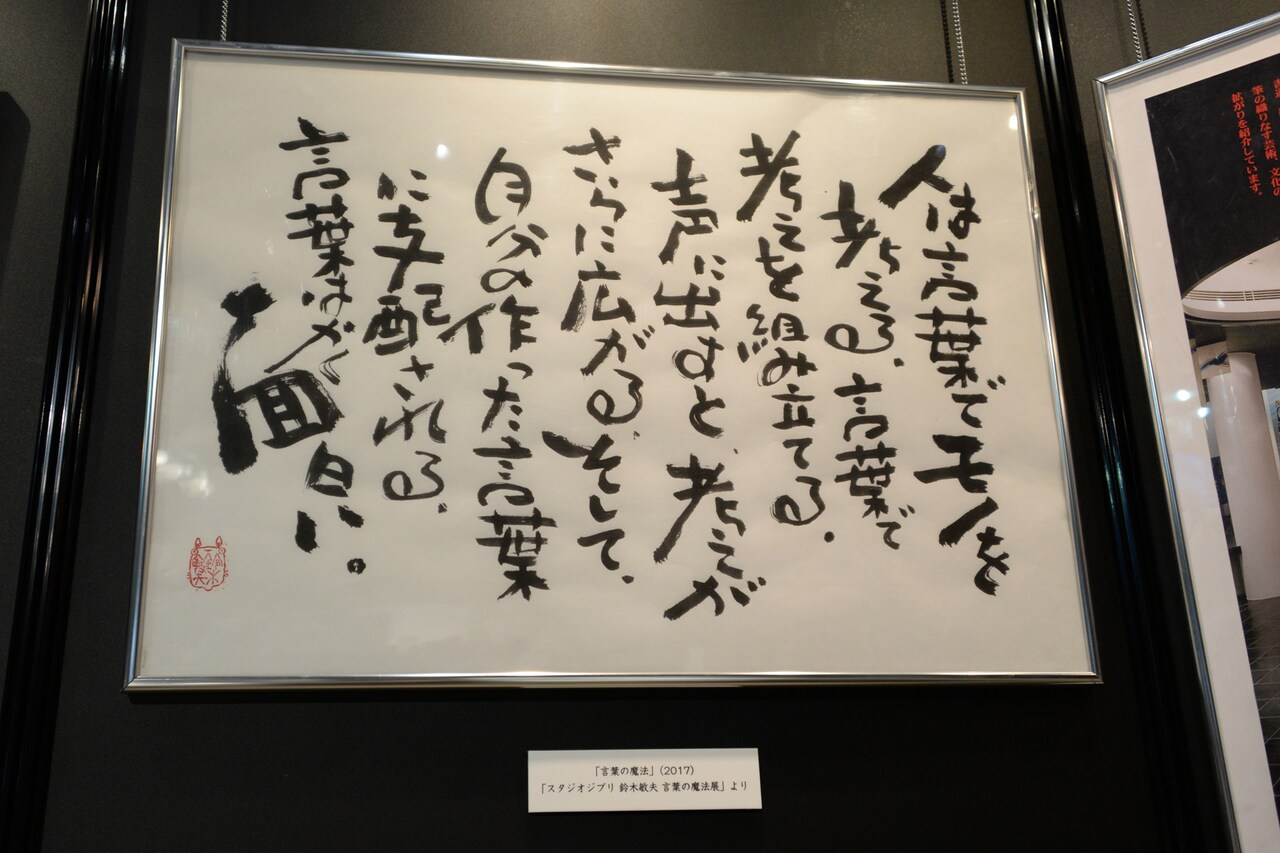 人は言葉でモノを
考える。言葉で
考えを組み立てる。
声に出すと、考えが
さらに広がる。そして、
自分の作った言葉
に支配される。
言葉は
面白い。
「言葉の魔法」(2017)
「スタジオジブリ 鈴木敏夫 言葉の魔法展」より
筆の織りなす芸術、文化の
拡がりを紹介しています。